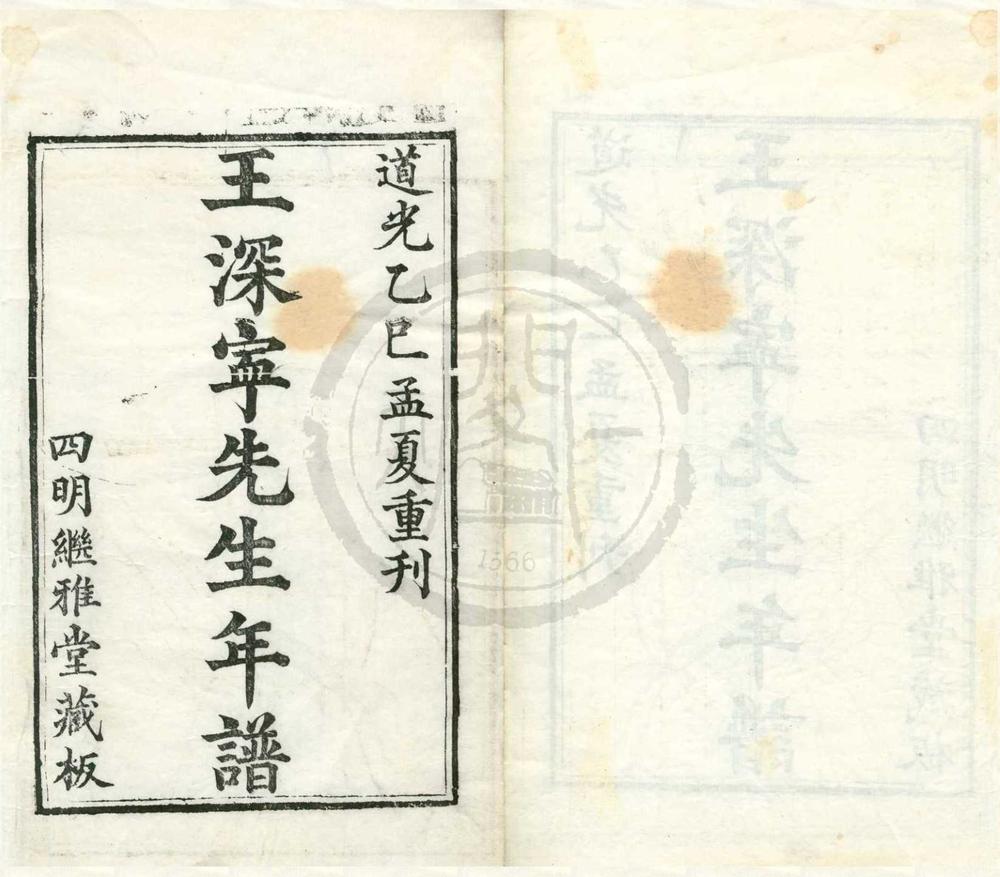 道光乙巳孟夏重刋
王深寕先生年譜
四明繼雅堂藏板
1566